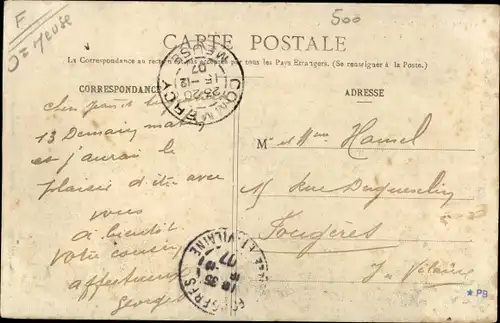 F
D = Meuse
500
CARTE POSTALE
La Correspondance au recto n'est pas acceptée par tous les Pays Étrangers. (Se renseigner à la Poste.)
CORRESPONDANCE
ADRESSE
COMMERCY
MEUSE
07
13 Demain
et j'aurai le
plaisir d'être avec
vous
à bientôt
Votre cousin
affectueux
Georges
Mr et Mme Hamel
15 Rue Duguesclin
Fougères
I-Vilaine
FOUGÈRES
VILAINE
07
* PB